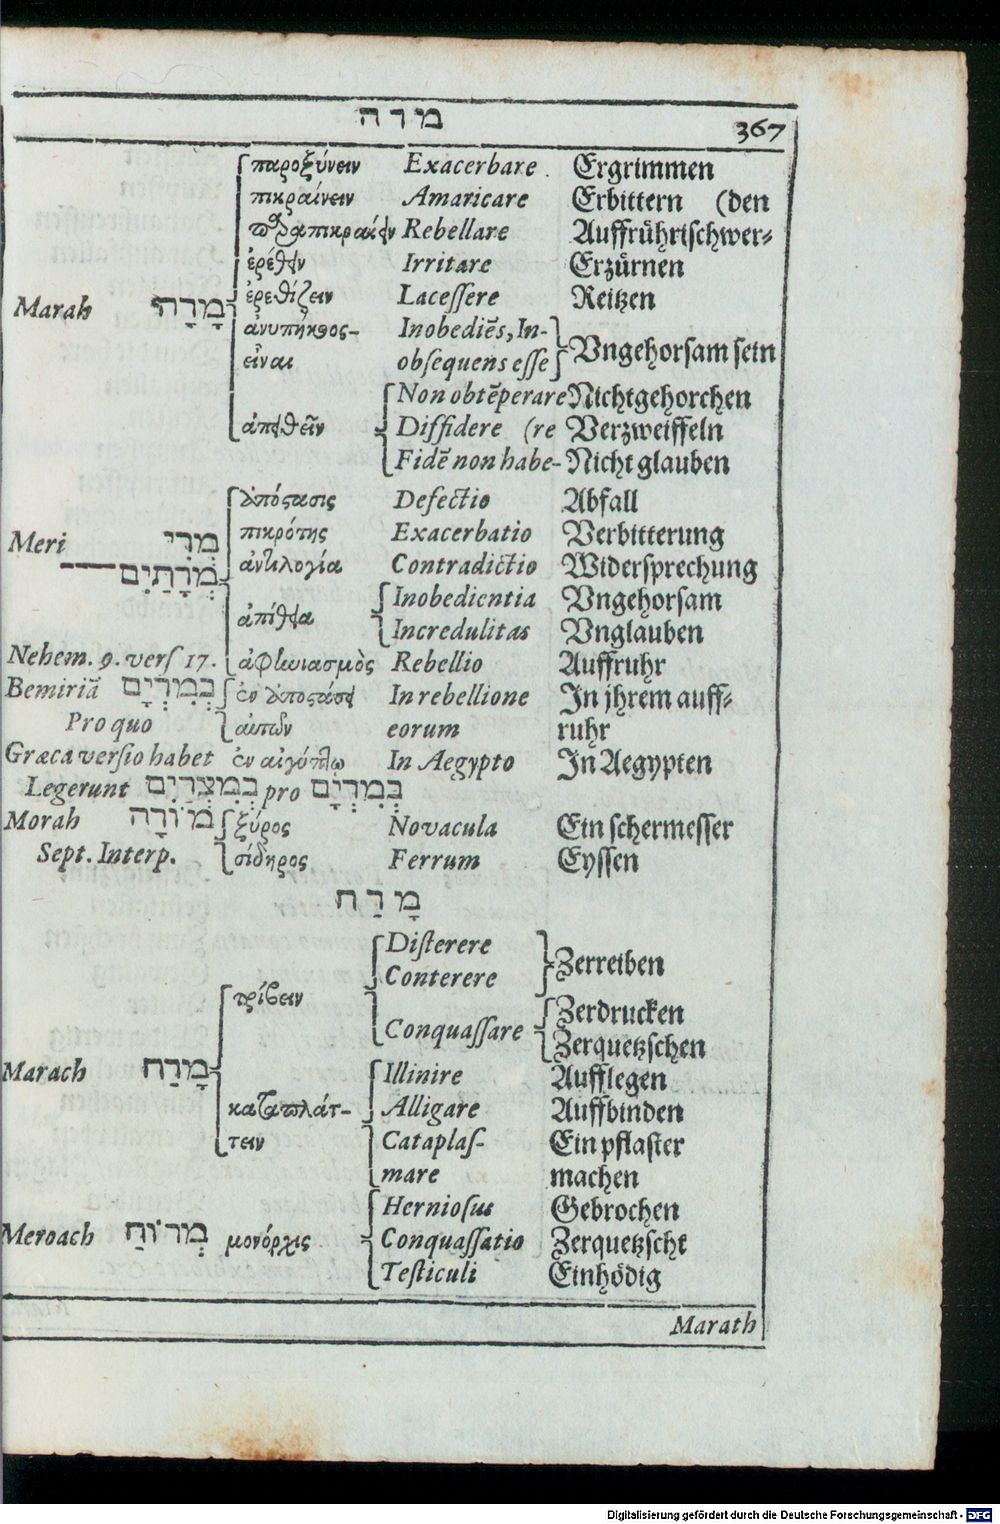 מרה 367
παροξύνειν Exacerbare. Ergrimmen
πικραίνειν Amaricare Erbittern (den
παραπικραίνειν Rebellare Auffrührischwer-
ἐρέθειν Irritare Erzürnen
Marah מָרָה ἐρεθίζειν Lacessere Reitzen
ἀνυπήκοος- Inobediēs, In-
εἶναι obsequens esse Vngehorsam sein
Non obtēperare Nichtgehorchen
ἀπειθεῖν Diffidere (re Verzweiffeln
Fidē non habe- Nicht glauben
ἀπόστασις Defectio Abfall
Meri מְרִי πικρότης Exacerbatio Verbitterung
מְרָתַיִם ἀντιλογία Contradictio Widersprechung
ἀπείθεια Inobedientia Vngehorsam
Incredulitas Vnglauben
Nehem. 9. vers 17. ἀφηνιασμὸς Rebellio Auffruhr
Bemiriā בְּמִרְיָם ἐν ἀποστάσει In rebellione In jhrem auff-
Pro quo αὐτῶν eorum ruhr
Græca versio habet ἐν αἰγύπτῳ In Aegypto In Aegypten
Legerunt בְּמִצְרַיִם pro בְּמִרְיָם
Morah מוֹרָה ξύρος Novacula Ein schermesser
Sept. Interp. σίδηρος Ferrum Eyssen
מָרַח
Disterere
Conterere Zerreiben
τρίβειν Zerdrucken
Conquassare Zerquetzschen
Marach מָרַח Illinire Aufflegen
καταπλάτ- Alligare Auffbinden
τειν Cataplas- Ein pflaster
mare machen
Herniosus Gebrochen
Meroach מְרוֹחַ μονόρχις Conquassatio Zerquetzscht
Testiculi Einhödig
Marath
Digitalisierung gefördert durch die Deutsche Forschungsgemeinschaft - DFG